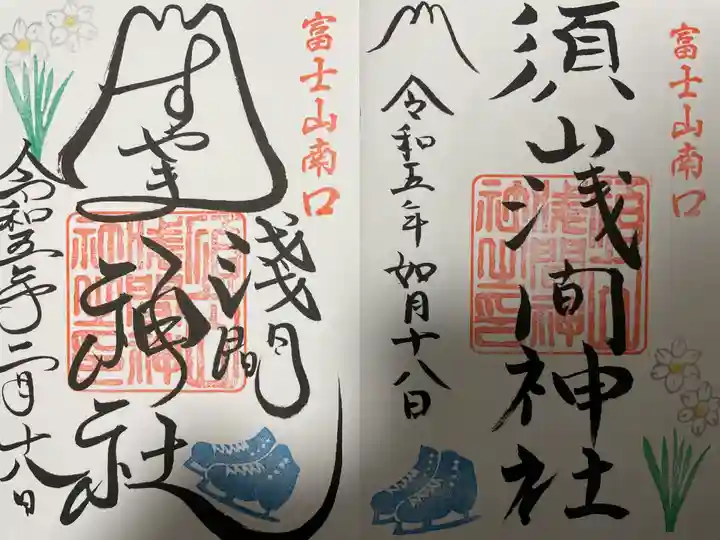 富士山南口
すやま
淺間
神社
令和五年二月十八日
富士山南口
須山浅間神社
令和五年如月十八日
須山
浅間神
社之印